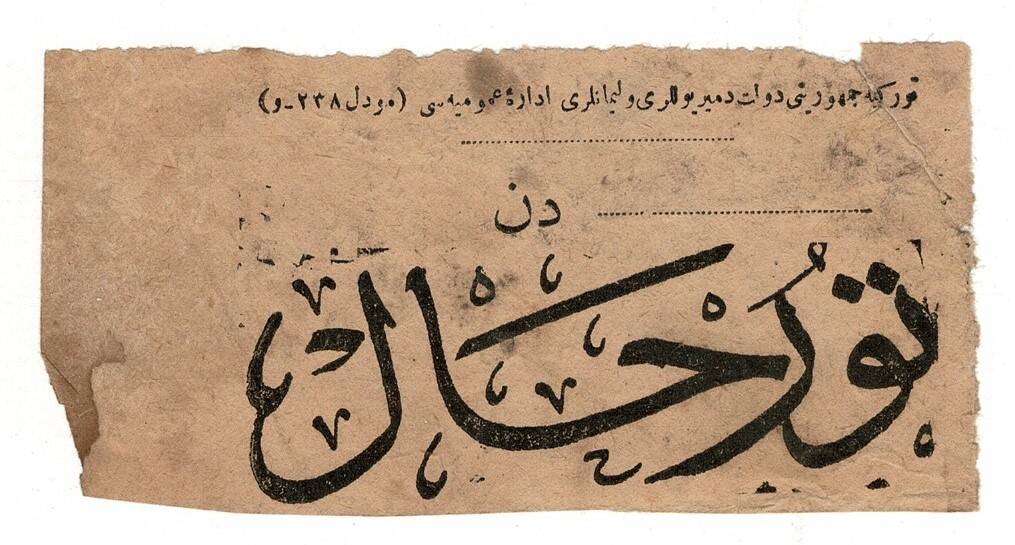 توركیه جمهوریتی دولت دمیریوللری و لیمانلری ادارۀ عمومیه‌سی (مودل ٢٣٨-و)
دن
تورحال